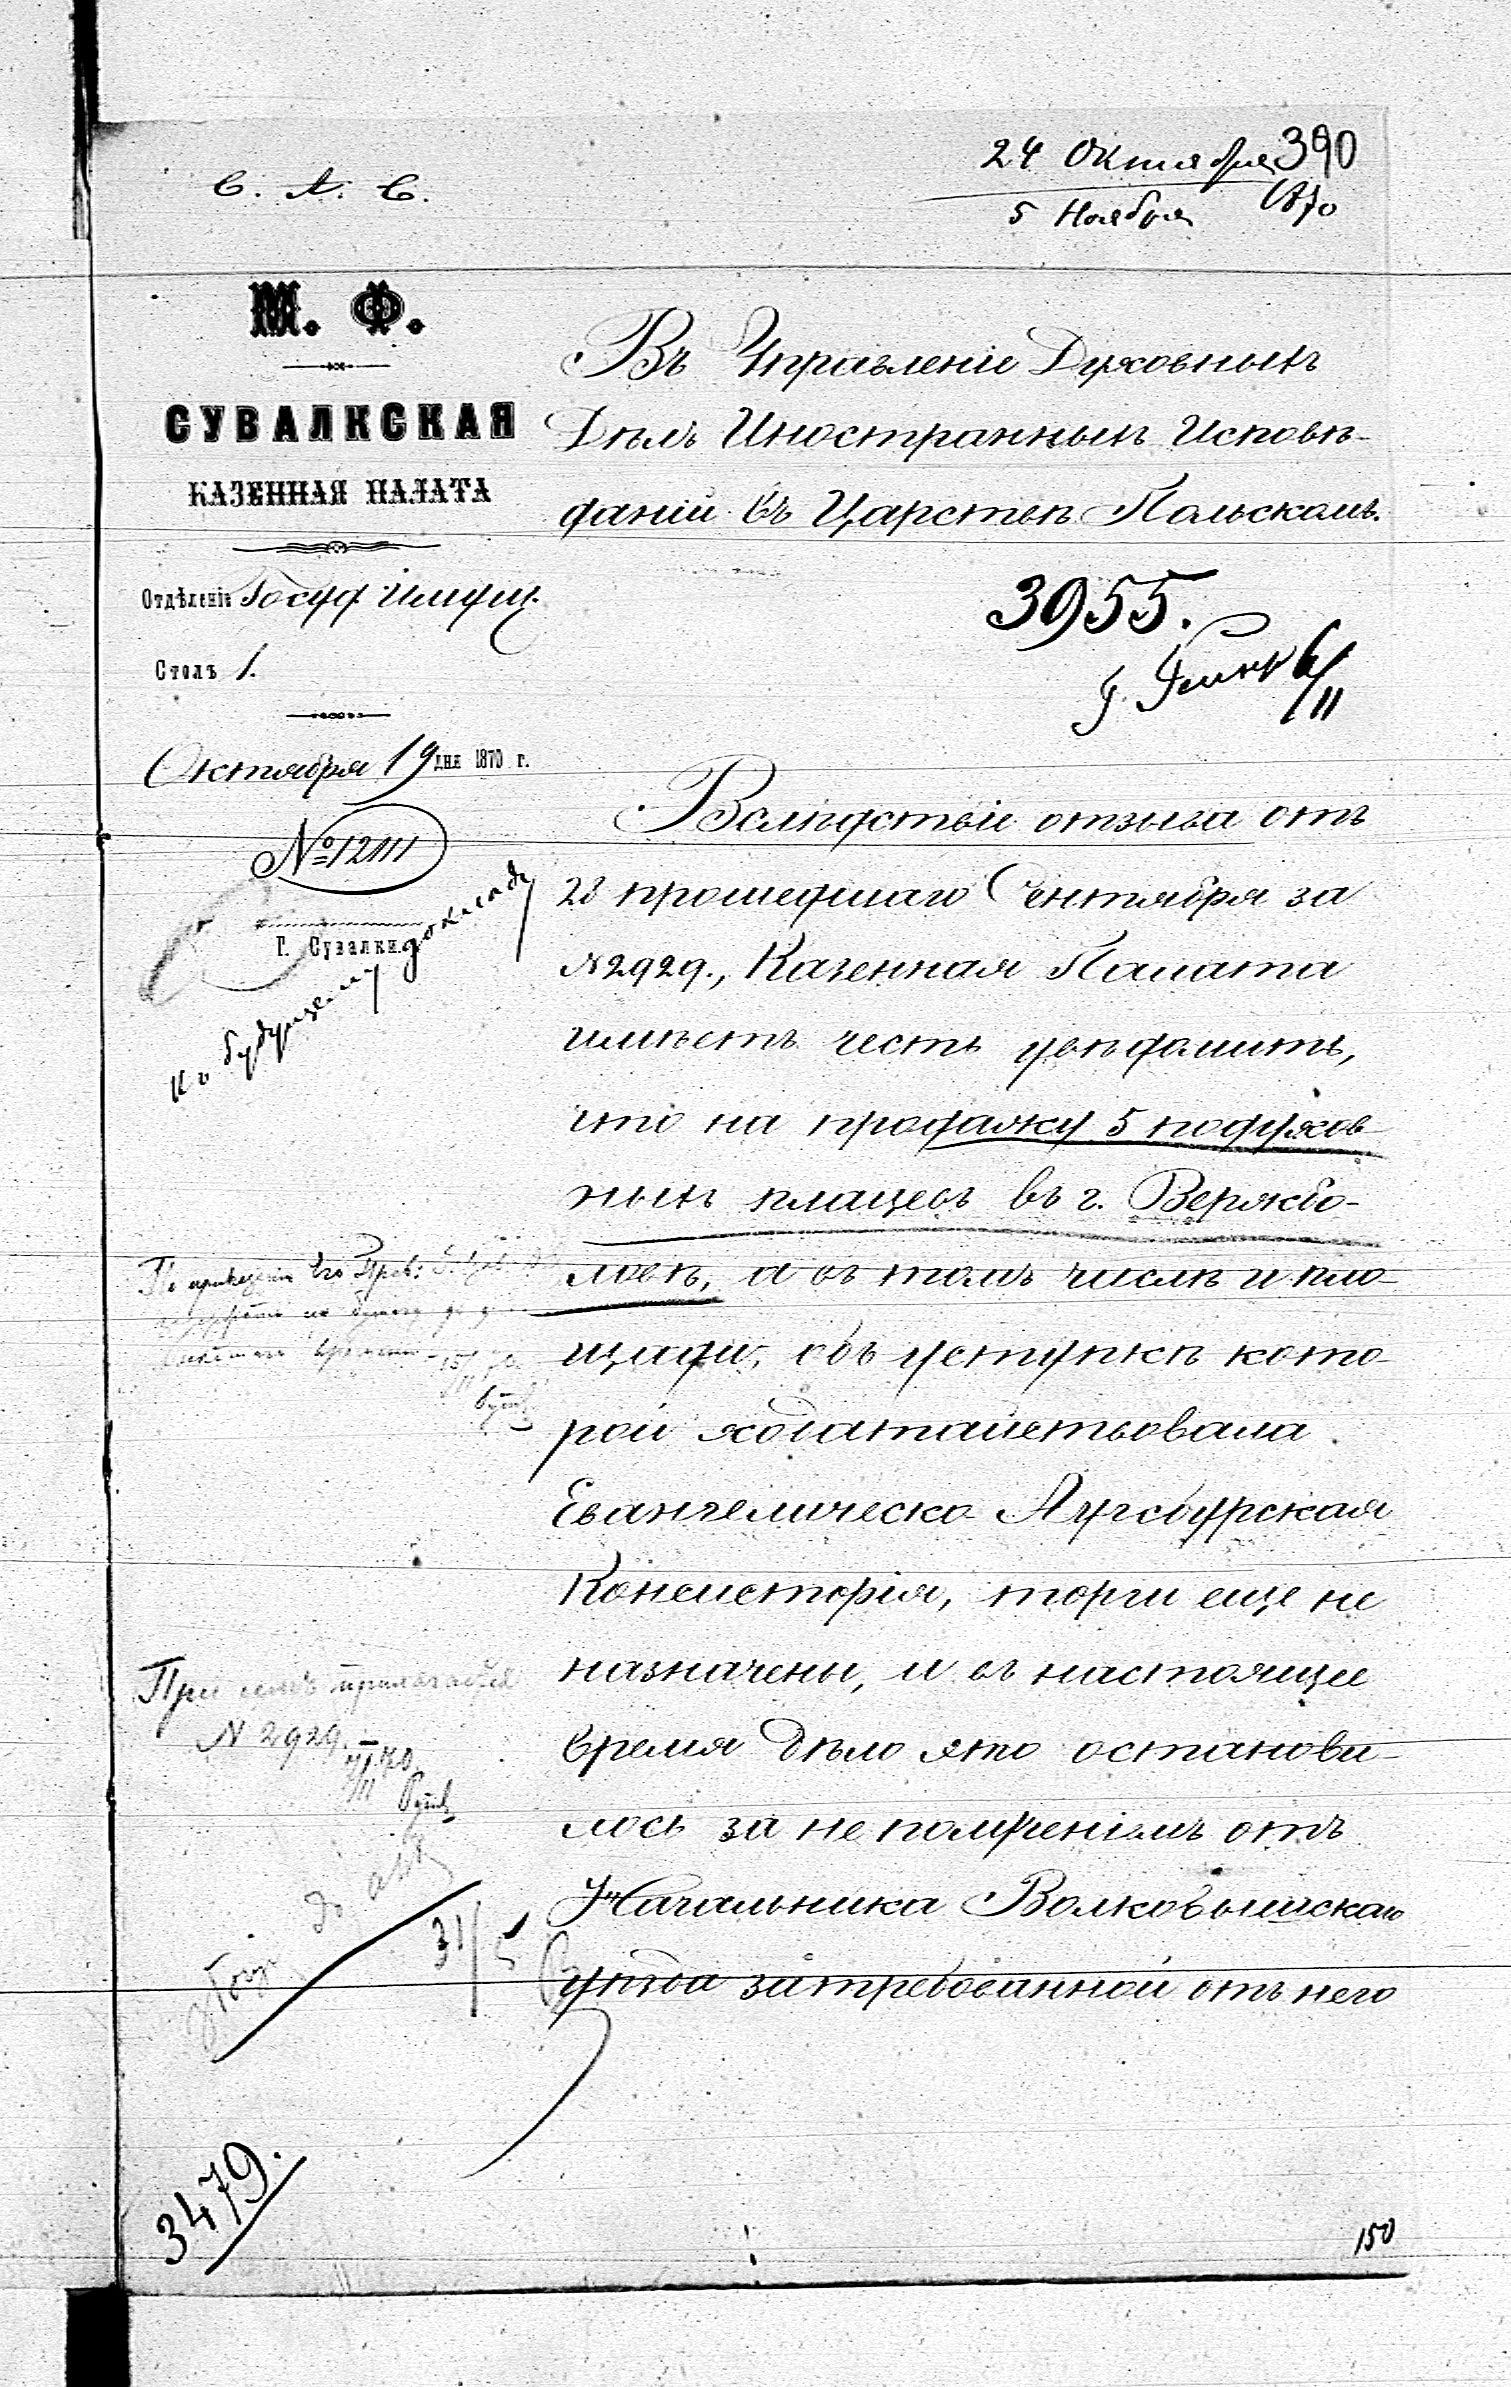 24 Октября 390
5 Ноября 1870
С. А. С.
М. Ф.
СУВАЛКСКАЯ
КАЗЕННАЯ ПАЛАТА
Отдѣленіе Госуд. Имущ.
Столъ 1.
Октября 19 дня 1870 г.
№ 12111
Г. Сувалки.
къ будущему докладу
Въ Управленіе Духовныхъ
Дѣлъ Иностранныхъ Исповѣ-
даній въ Царствѣ Польскомъ.
3955.
6/11
Вслѣдствіе отзыва отъ
28 прошедшаго Сентября за
№ 2929., Казенная Палата
имѣетъ честь увѣдомить,
что на продажу 5 подухов-
ныхъ плацевъ въ г. Вержбо-
ловѣ, а въ томъ числѣ и пло-
щади, объ уступкѣ кото-
рой ходатайствовала
Евангелическо-Аугсбурская
Консисторія, торги еще не
назначены, и въ настоящее
время дѣло это останови-
лось за неполученіемъ отъ
Начальника Волковышскаго
уѣзда затребованной отъ него
При семъ прилагается
N 2929.
31/5
3479.
150